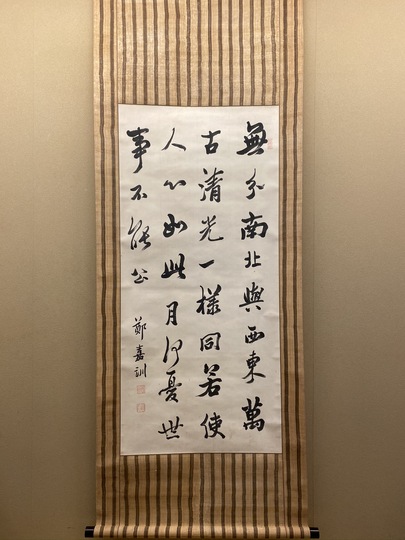 無分南北與西東萬
古清光一樣同若使
人心如此月何憂世
事不能公
鄭嘉訓